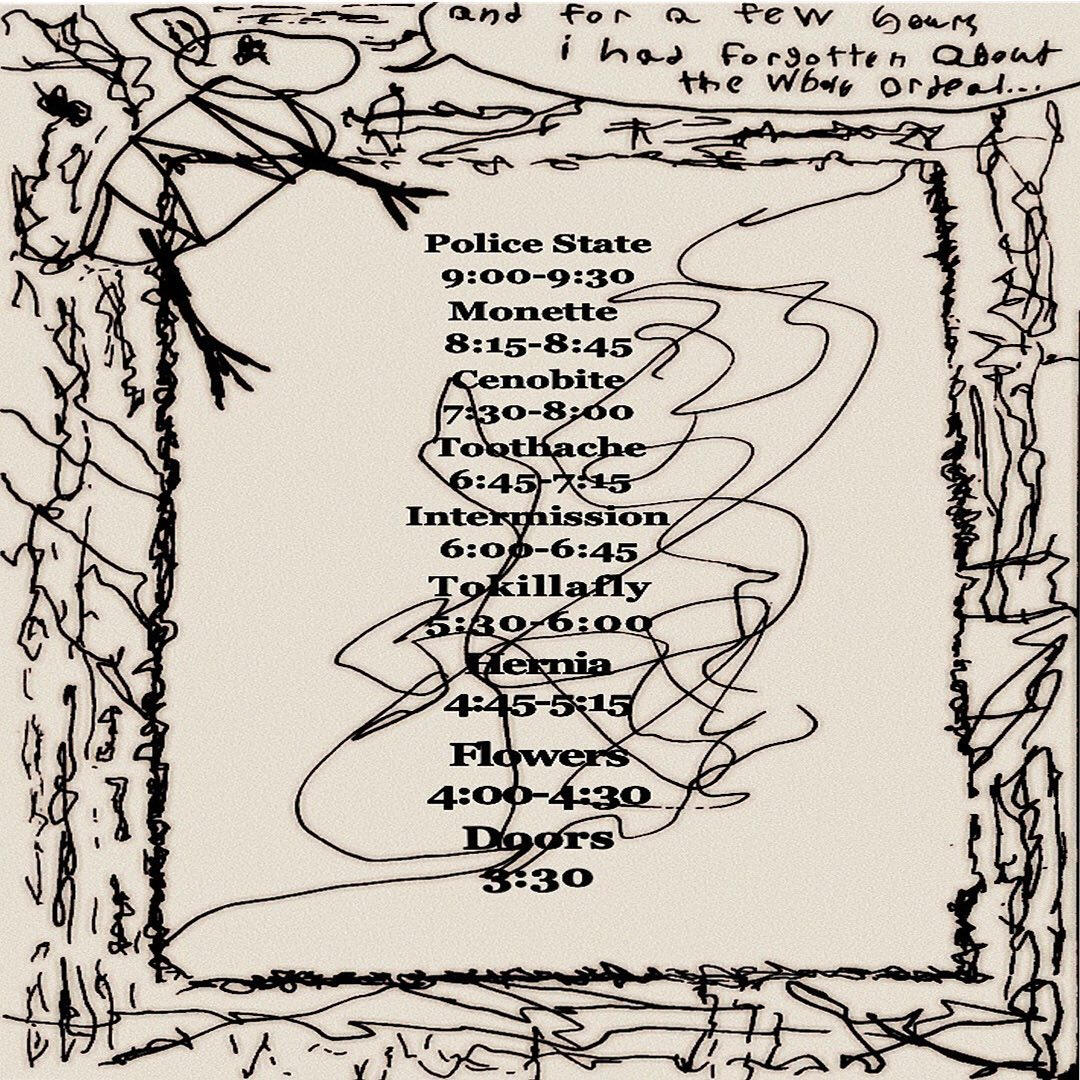 and for a few hours
i had forgotten About
the Whole Ordeal...
Police State
9:00-9:30
Monette
8:15-8:45
Cenobite
7:30-8:00
Toothache
6:45-7:15
Intermission
6:00-6:45
Tokillafly
5:30-6:00
Hernia
4:45-5:15
Flowers
4:00-4:30
Doors
3:30